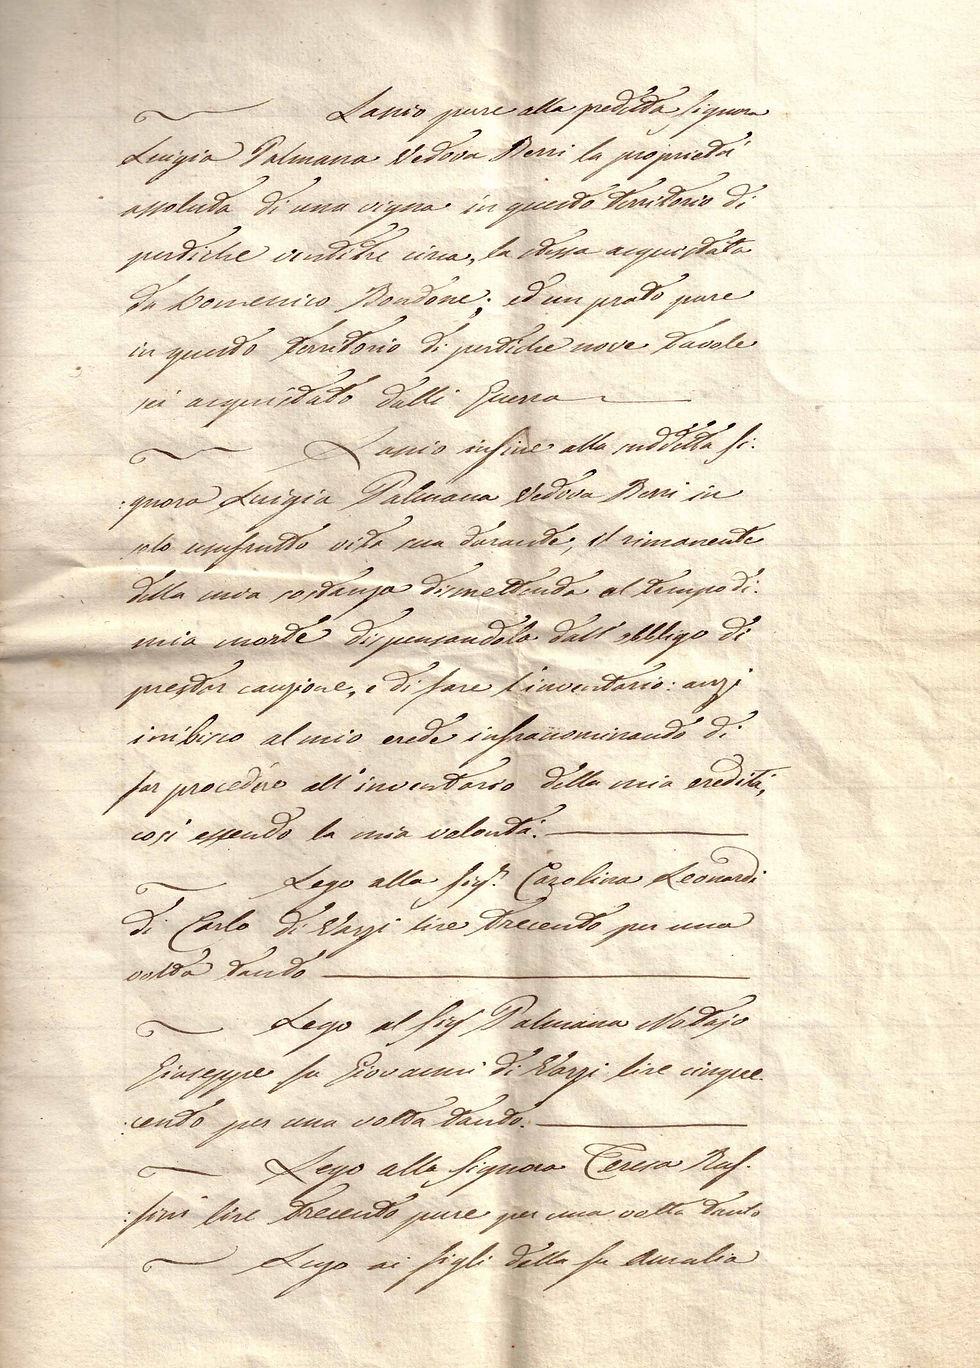 Lascio pure alla predetta Signora
Luigia Palmana Vedova Berri la proprietà
assoluta di una vigna in questo territorio di
pertiche ventitre circa, la stessa acquistata
da Domenico Bondone; ed un prato pure
in questo territorio di pertiche nove tavole
sei acquistato dalli Guerra
Lascio infine alla suddetta Si:
:gnora Luigia Palmana Vedova Berri in
solo usufrutto vita sua durante, il rimanente
della mia sostanza dismettenda al tempo di
mia morte dispensandola dall'obbligo di
prestar cauzione, e di fare l'inventario: anzi
inibisco al mio erede infranominando di
far procedere all'inventario della mia eredità,
così essendo la mia volontà.
Lego alla Sigra. Carolina Leonardi
di Carlo di Varzi lire trecento per una
volta tanto
Lego al Sigr Palmana Notajo
Giuseppe fu Giovanni di Varzi lire cinque
:cento per una volta tanto.
Lego alla Signora Teresa Raf:
:fini lire trecento pure per una volta tanto
Lego ai figli della fu Aurelia